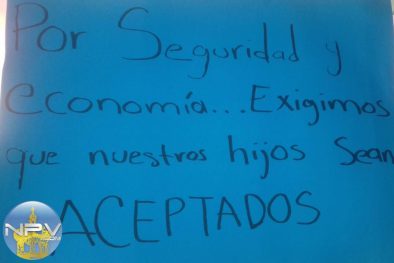 Por Seguridad y
economía... Exigimos
que nuestros hijos Sean
ACEPTADOS
NPV